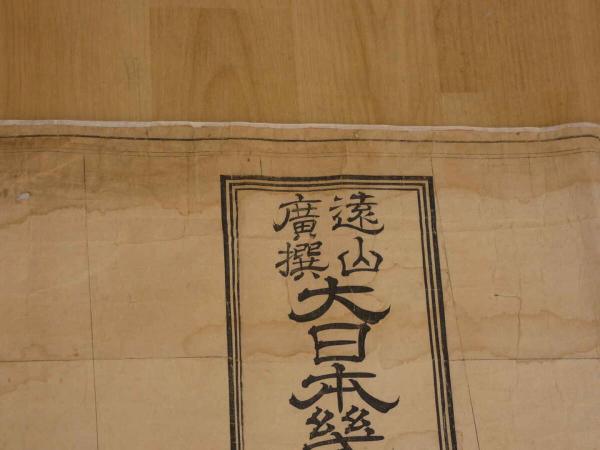 遠山
廣撰
大日本